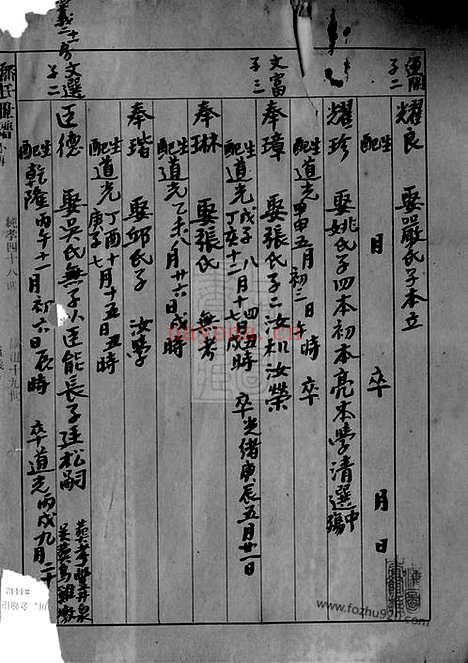 運開
子二
耀良　娶嚴氏子本立
配生　月　卒　月　日
耀珍　娶姚氏子四本初本亮本學清選
配生道光甲申五月初二日午時　卒
文富
子三
奉璋　娶張氏子二汝松汝榮
配生道光戊子八月十四丑時　卒光緒庚辰五月廿一日
丁亥十二月十七戌
奉琳　娶張氏　無考
配生道光乙未八月廿六日戌時
奉瑎　娶邱氏子　汝學
配生道光丁酉十月十五日丑時
庚子七
文選
子二
匡德　娶吳氏無子以匡能長子廷松嗣
配生乾隆丙午十一月初六日辰時　卒道光丙戌九月二十
純孝四十八世
十九世
nayona.cn
www.fozhu920.com